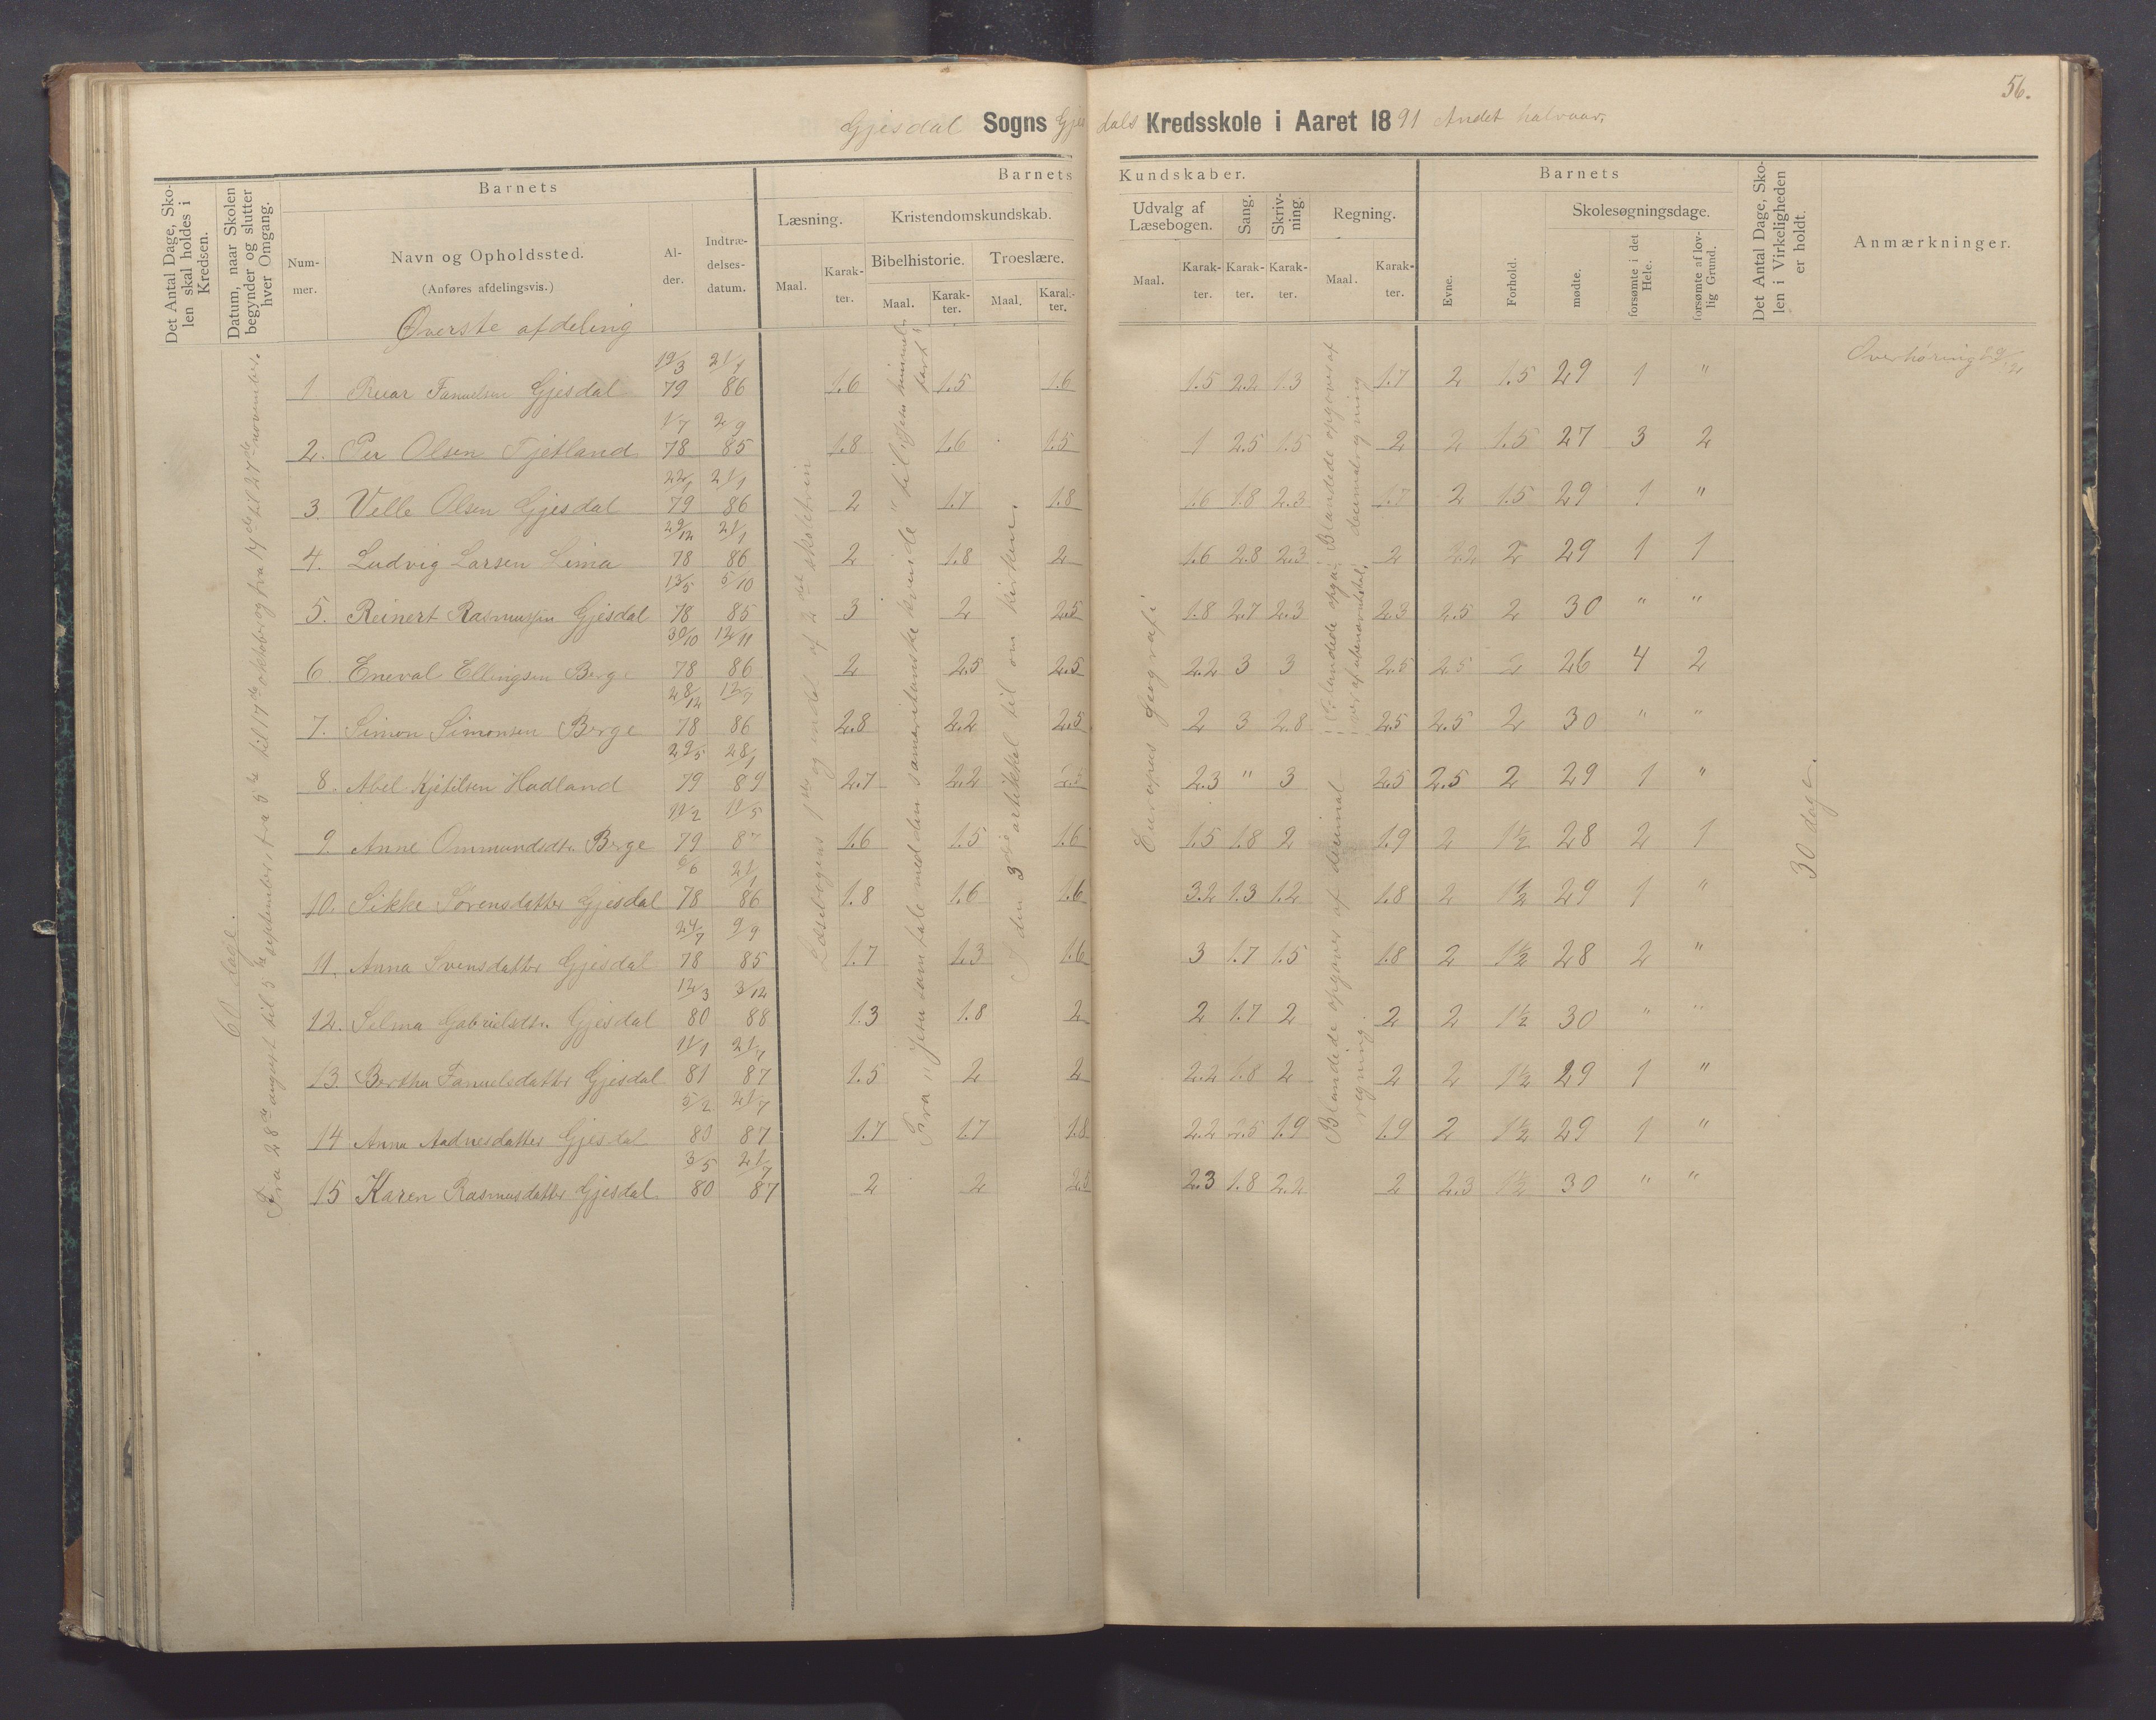 56.
Gjesdal Sogns Gjesdals Kredsskole i Aaret 1891 Andet halvaar.
Det Antal Dage, Skolen skal holdes i Kredsen.
Datum, naar Skolen begynder og slutter hver Omgang.
Barnets
Nummer.
Navn og Opholdssted.
(Anføres afdelingsvis.)
Alder.
Indtrædelsesdatum.
Barnets Kundskaber.
Læsning.
Maal.
Karakter.
Kristendomskundskab.
Bibelhistorie.
Maal.
Karakter.
Troeslære.
Maal.
Karakter.
Udvalg af Læsebogen.
Maal.
Karakter.
Sang.
Karakter.
Skrivning.
Karakter.
Regning.
Maal.
Karakter.
Barnets
Evne.
Forhold.
Skolesøgningsdage.
mødte.
forsømte i det Hele.
forsømte af lovlig Grund.
Det Antal Dage, Skolen i Virkeligheden er holdt.
Anmærkninger.
Øverste afdeling
60 dage.
Fra 28de august til 5te september fra til 17de oktober og fra 14de til 27de november.
Læsebogens 1ste og endel af 2det skoletrin
Fra "Jesu samtale med den samaritanske kvinde" til "Jesu himmelfart"
I den 3die artikkel til om kirken.
Europas Geografi
Blandede opgaver af decimalregning
Blandede opgaver af decimalregning.
30 dage.
Overhøring
1 Fanuelsen Gjesdal 19/3 79 21/1 86 1.6 1.5 1.6 1.5 2.2 1.3 1.7 2 1.5 29 1 "
2. Per Olsen Fjetland 1/7 78 2/9 85 1.8 1.6 1.5 1 2.5 1.5 2 2 1.5 27 3 2
3. Velle Olsen Gjesdal 22/1 79 21/1 86 2 1.7 1.8 1.6 1.8 2.3 1.7 2 1.5 29 1 "
4. Ludvig Larsen Lima 29/12 78 21/1 86 2 1.8 2 1.6 2.8 2.3 2 2.2 2 29 1 1
5. Reinert Rasmussen Gjesdal 13/5 78 5/10 85 3 2 2.5 1.8 2.7 2.3 2.3 2.5 2 30 " "
6. Eneval Ellingsen Berge 30/10 78 12/11 86 2 2.5 2.5 2.2 3 3 2.5 2.5 2 26 4 2
7. Simon Simonsen Berge 28/12 78 12/7 86 2.8 2.2 2.5 2 3 2.8 2.5 2.5 2 30 " "
8. Abel Kjetilsen Hadland 29/5 79 28/1 89 2.7 2.2 2.5 2.3 " 3 2.5 2.5 2 29 1 "
9. Anne Ommundsdtr. Berge 11/2 79 11/5 87 1.6 1.5 1.6 1.5 1.8 2 1.9 2 1½ 28 2 1
10. Sikke Sørensdatter Gjesdal 6/6 78 21/1 86 1.8 1.6 1.6 3.2 1.3 1.2 1.8 2 1½ 29 1 "
11. Anna Svensdatter Gjesdal 24/7 78 9/9 85 1.7 1.3 1.6 3 1.7 1.5 1.8 2 1½ 28 2 "
12. Selma Gabrielsdtr. Gjesdal 12/3 80 3/12 88 1.3 1.8 2 2 1.7 2 2 2 1½ 30 " "
13. Bertha Fanuelsdatter Gjesdal 11/1 81 21/7 87 1.5 2 2 2.2 1.8 2 2 2 1½ 29 1 "
14 Anna Aadnesdatter Gjesdal 5/2 80 21/7 87 1.7 1.7 1.8 2.2 2.5 1.9 1.9 2 1½ 29 1 "
15 Karen Rasmusdatter Gjesdal 3/5 80 21/7 87 2 2 2.5 2.3 1.8 2.2 2 2.3 1½ 30 " "